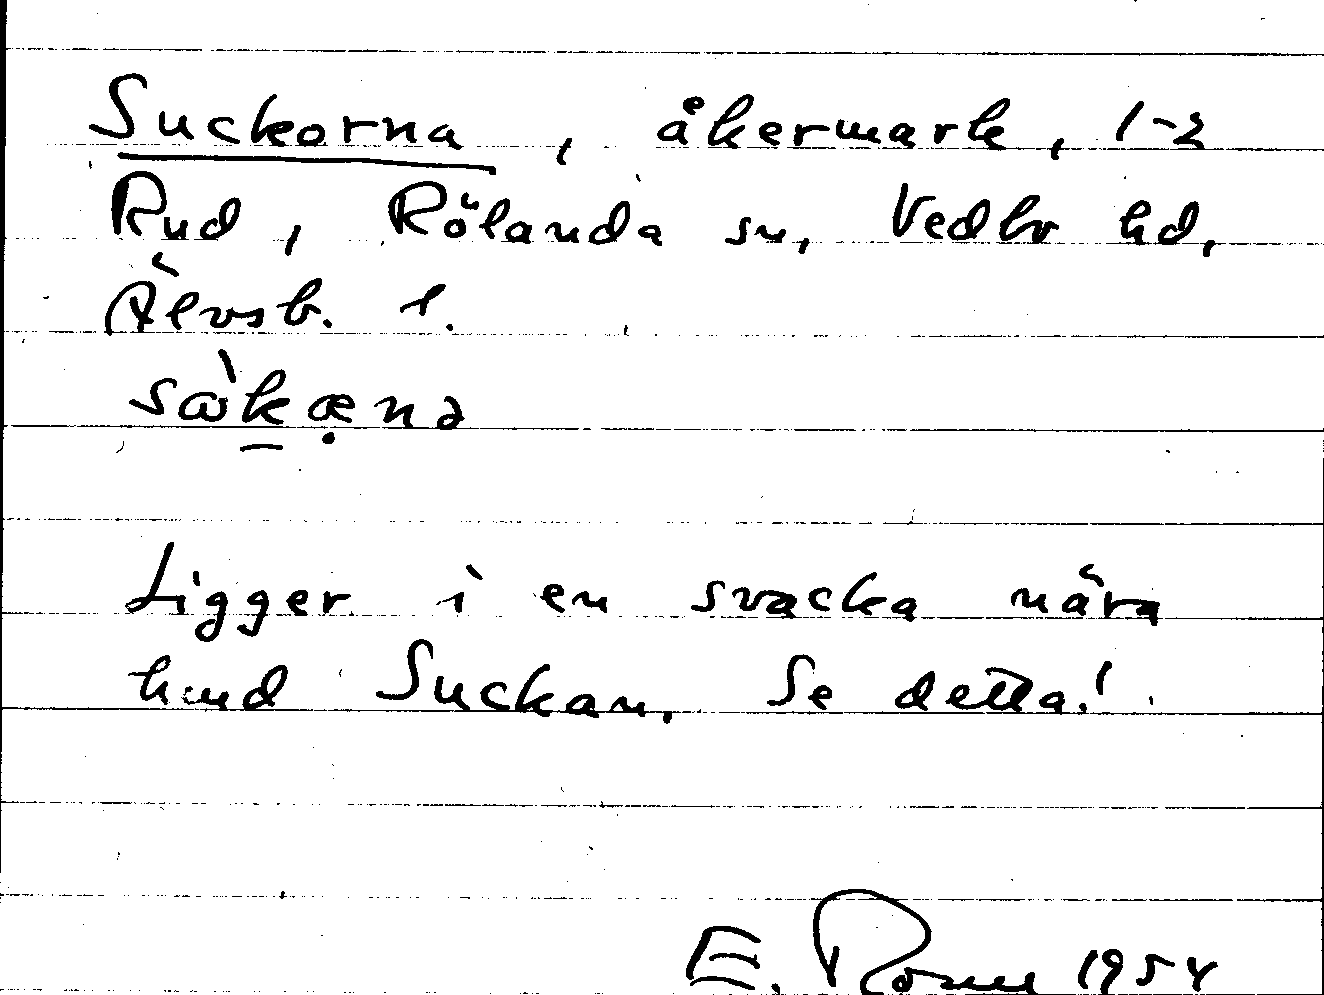 Suckorna, åkermark, 1-2
Rud, Rölanda sn, Vedbo hd,
Älvsb. l.
Ligger i en svacka nära
hmd Suckan. Se detta!
E. 1954